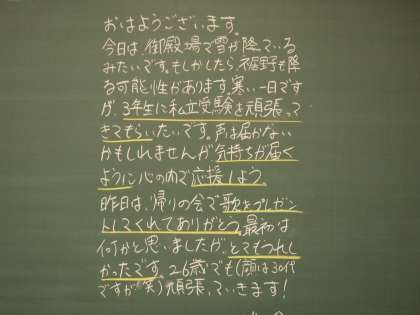 おはようございます。
今日は、御殿場で雪が降っている
みたいです。もしかしたら、裾野も降
る可能性があります。寒い一日です
が、3年生に私立受験を頑張って
きてもらいたいです。声は届かない
かもしれませんが気持ちが届く
ように心の内で応援しよう。
昨日は、帰りの会で歌をプレゼン
トしてくれてありがとう。最初は
何かと思いましたが、とてもうれし
かったです。26歳でも(顔は30代
ですが(笑)頑張っていきます!